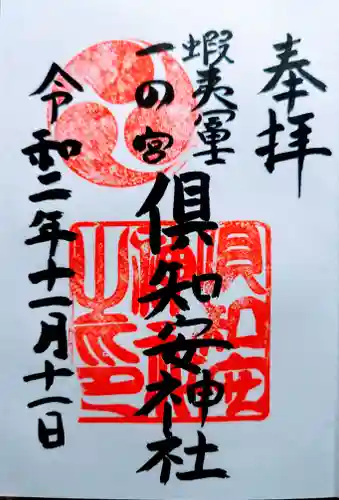 奉拝
蝦夷富士
一の宮
倶知安神社
令和二年十一月十一日
倶知安神社之印